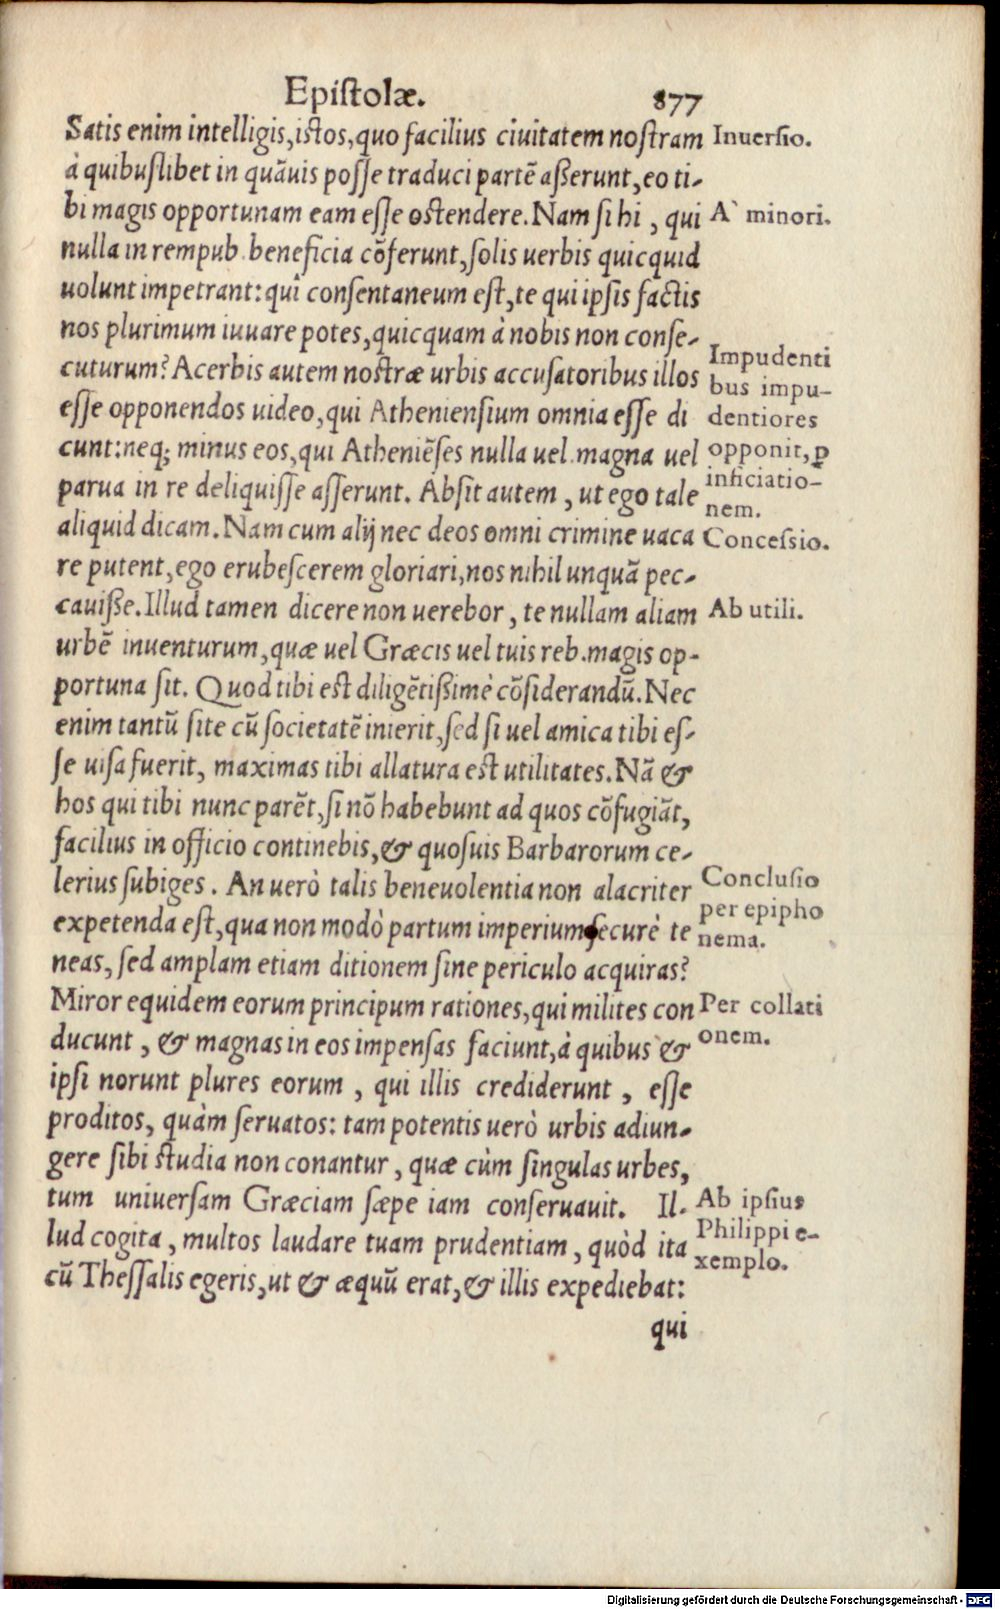 Epistolæ. 877
Satis enim intelligis, istos, quo facilius ciuitatem nostram
à quibuslibet in quãuis posse traduci partẽ aßerunt, eo ti-
bi magis opportunam eam esse ostendere. Nam si hi, qui
nulla in rempub. beneficia cõferunt, solis uerbis quicquid
uolunt impetrant: quî consentaneum est, te qui ipsis factis
nos plurimum iuuare potes, quicquam à nobis non conse-
cuturum? Acerbis autem nostræ urbis accusatoribus illos
esse opponendos uideo, qui Atheniensium omnia esse di
cunt: neq; minus eos, qui Atheniẽses nulla uel magna uel
parua in re deliquisse asserunt. Absit autem, ut ego tale
aliquid dicam. Nam cum alij nec deos omni crimine uaca
re putent, ego erubescerem gloriari, nos nihil unquã pec-
cauiße. Illud tamen dicere non uerebor, te nullam aliam
urbẽ inuenturum, quæ uel Græcis uel tuis reb. magis op-
portuna sit. Quod tibi est diligẽtißimè cõsiderandũ. Nec
enim tantũ si te cũ societatẽ inierit, sed si uel amica tibi es-
se uisa fuerit, maximas tibi allatura est utilitates. Nã &
hos qui tibi nunc parẽt, si nõ habebunt ad quos cõfugiãt,
facilius in officio continebis, & quosuis Barbarorum ce-
lerius subiges. An uerò talis beneuolentia non alacriter
expetenda est, qua non modò partum imperium securè te
neas, sed amplam etiam ditionem sine periculo acquiras?
Miror equidem eorum principum rationes, qui milites con
ducunt, & magnas in eos impensas faciunt, à quibus &
ipsi norunt plures eorum, qui illis crediderunt, esse
proditos, quàm seruatos: tam potentis uerò urbis adiun-
gere sibi studia non conantur, quæ cùm singulas urbes,
tum uniuersam Græciam sæpe iam conseruauit. Il-
lud cogita, multos laudare tuam prudentiam, quòd ita
cũ Thessalis egeris, ut & æquũ erat, & illis expediebat:
qui
Inuersio.
A` minori.
Impudenti
bus impu-
dentiores
opponit, ꝑ
inficiatio-
nem.
Concessio.
Ab utili.
Conclusio
per epipho
nema.
Per collati
onem.
Ab ipsius
Philippi e-
xemplo.
Digitalisierung gefördert durch die Deutsche Forschungsgemeinschaft - DFG